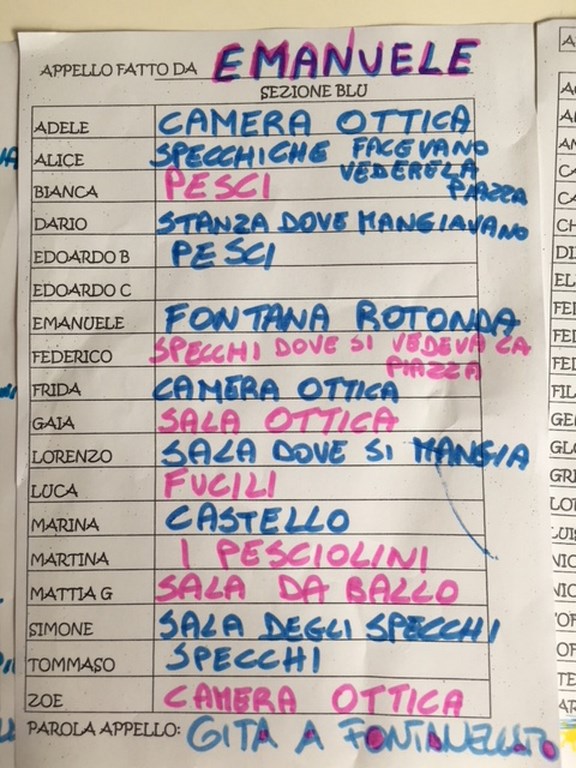 APPELLO FATTO DA EMANUELE
SEZIONE BLU
ADELE CAMERA OTTICA
ALICE SPECCHI CHE FACEVANO
VEDERE LA
PIAZZA
BIANCA PESCI
DARIO STANZA DOVE MANGIAVANO
EDOARDO B PESCI
EDOARDO C
EMANUELE FONTANA ROTONDA
FEDERICO SPECCHI DOVE SI VEDEVA LA
PIAZZA
FRIDA CAMERA OTTICA
GAIA SALA OTTICA
LORENZO SALA DOVE SI MANGIA
LUCA FUCILI
MARINA CASTELLO
MARTINA I PESCIOLINI
MATTIA G SALA DA BALLO
SIMONE SALA DEGLI SPECCHI
TOMMASO SPECCHI
ZOE CAMERA OTTICA
PAROLA APPELLO: GITA A FONTANELLATO